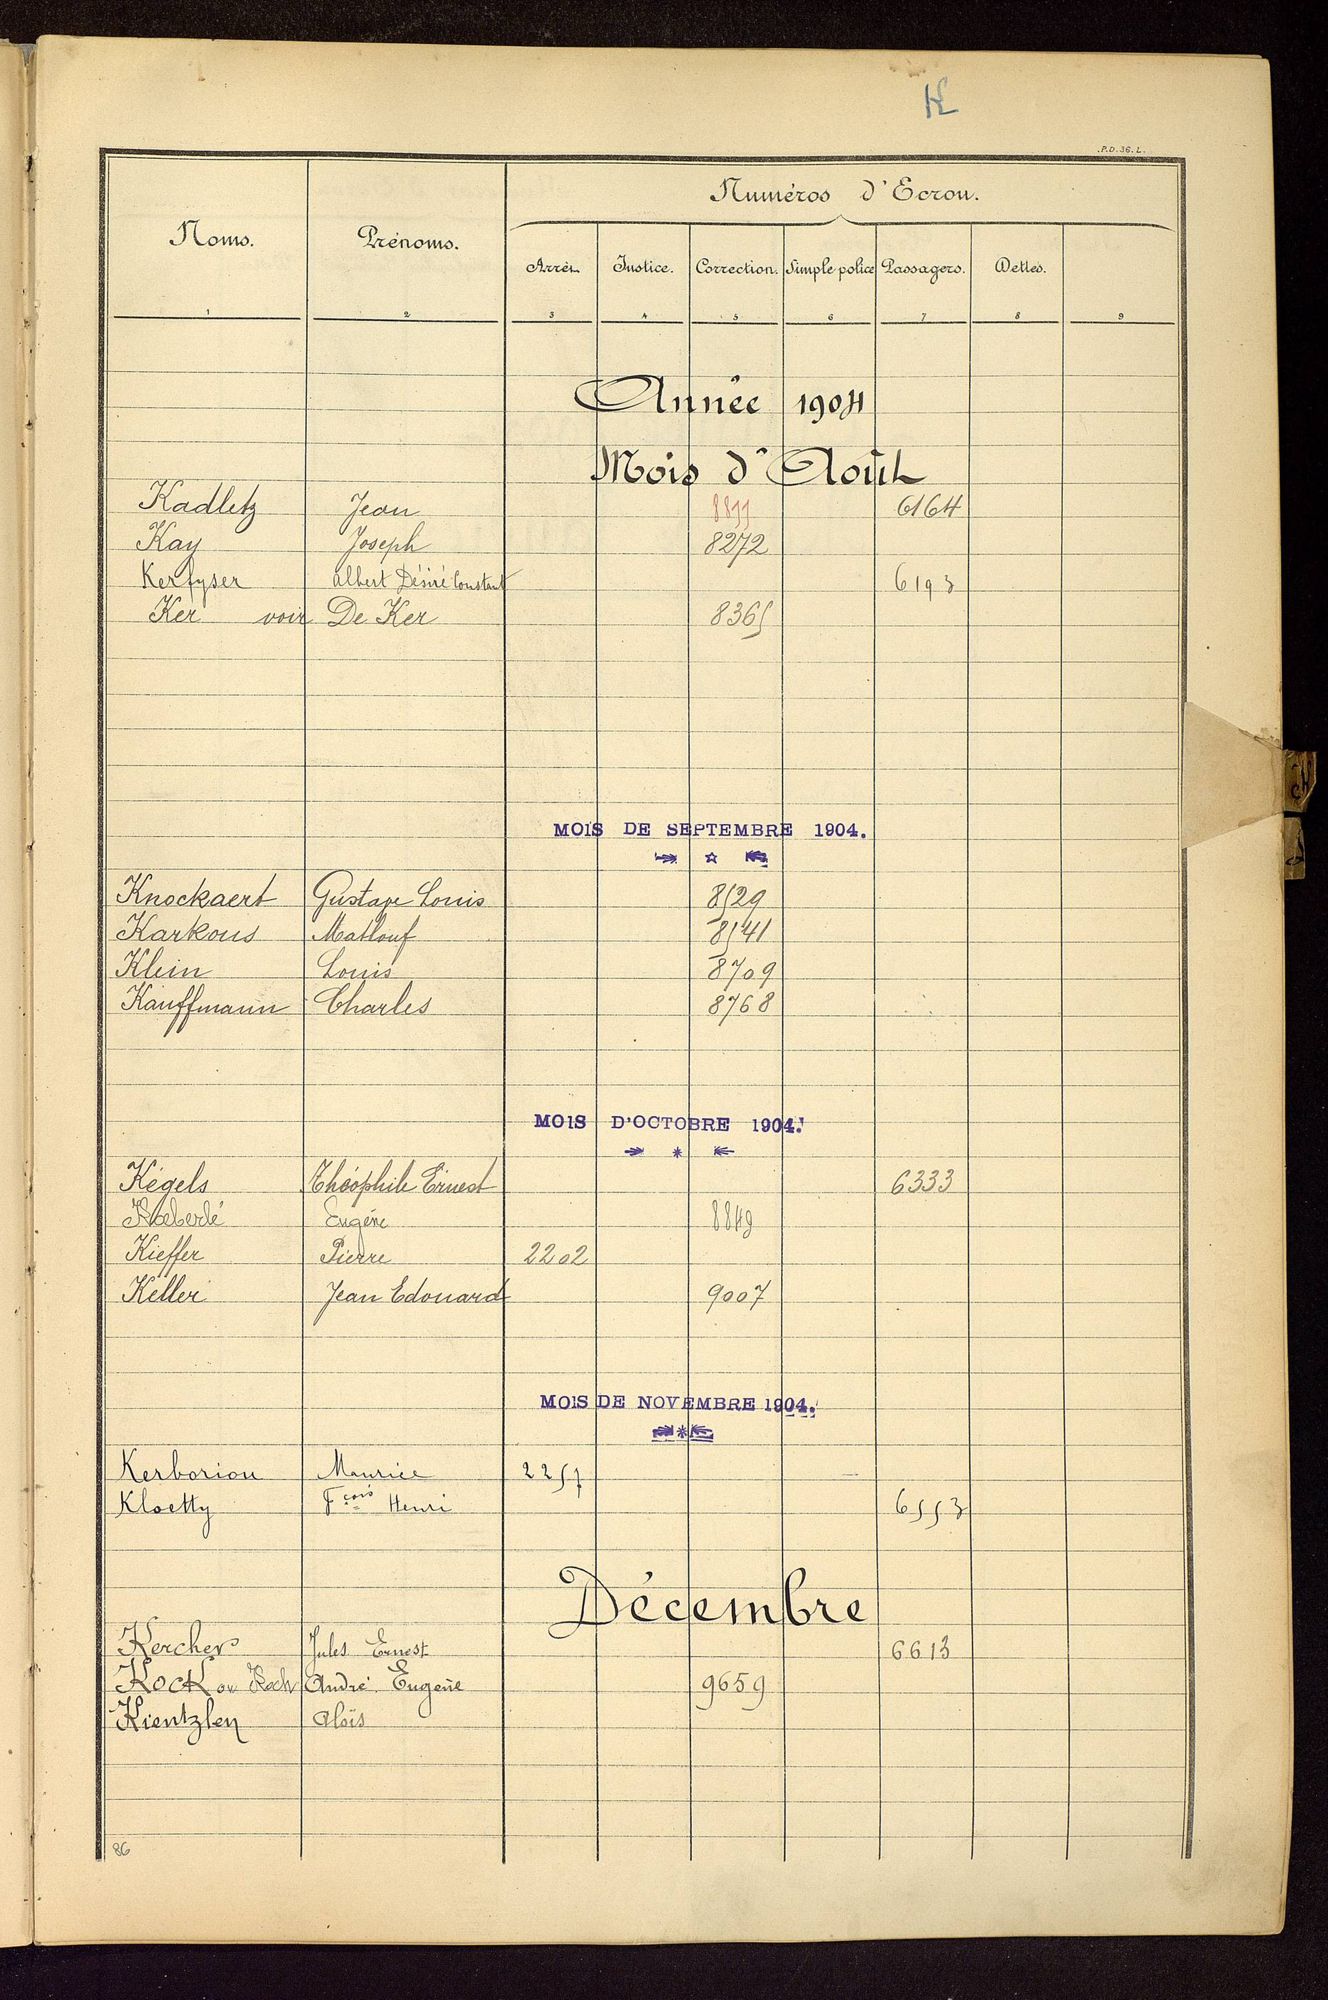 K
P.D. 36. L.
Noms. Prénoms. Numéros d'Ecrou.
Arrêt. Justice. Correction. Simple police Passagers. Dettes.
1 2 3 4 5 6 7 8 9
Année 1904
Mois d'Août
Kadletz Jean 8255 6164
Kay Joseph 8272
Kerfyser Albert Désiré Constant 6193
Ker voir De Ker 8365
MOIS DE SEPTEMBRE 1904.
Knockaert Gustave Louis 8529
Karkous Matlouf 8541
Klein Louis 8709
Kauffmann Charles 8768
MOIS D'OCTOBRE 1904.
Kégels Théophile Ernest 6333
Koeberlé Eugène 8849
Kieffer Pierre 2202
Keller Jean Edouard 9007
MOIS DE NOVEMBRE 1904.
Kerboriou Maurice 2257
Kloetty Fçois Henri 6553
Décembre
Kercher Jules Ernest 6613
Kock ou Koch André Eugène 9659
Kientzlen Aloïs
86